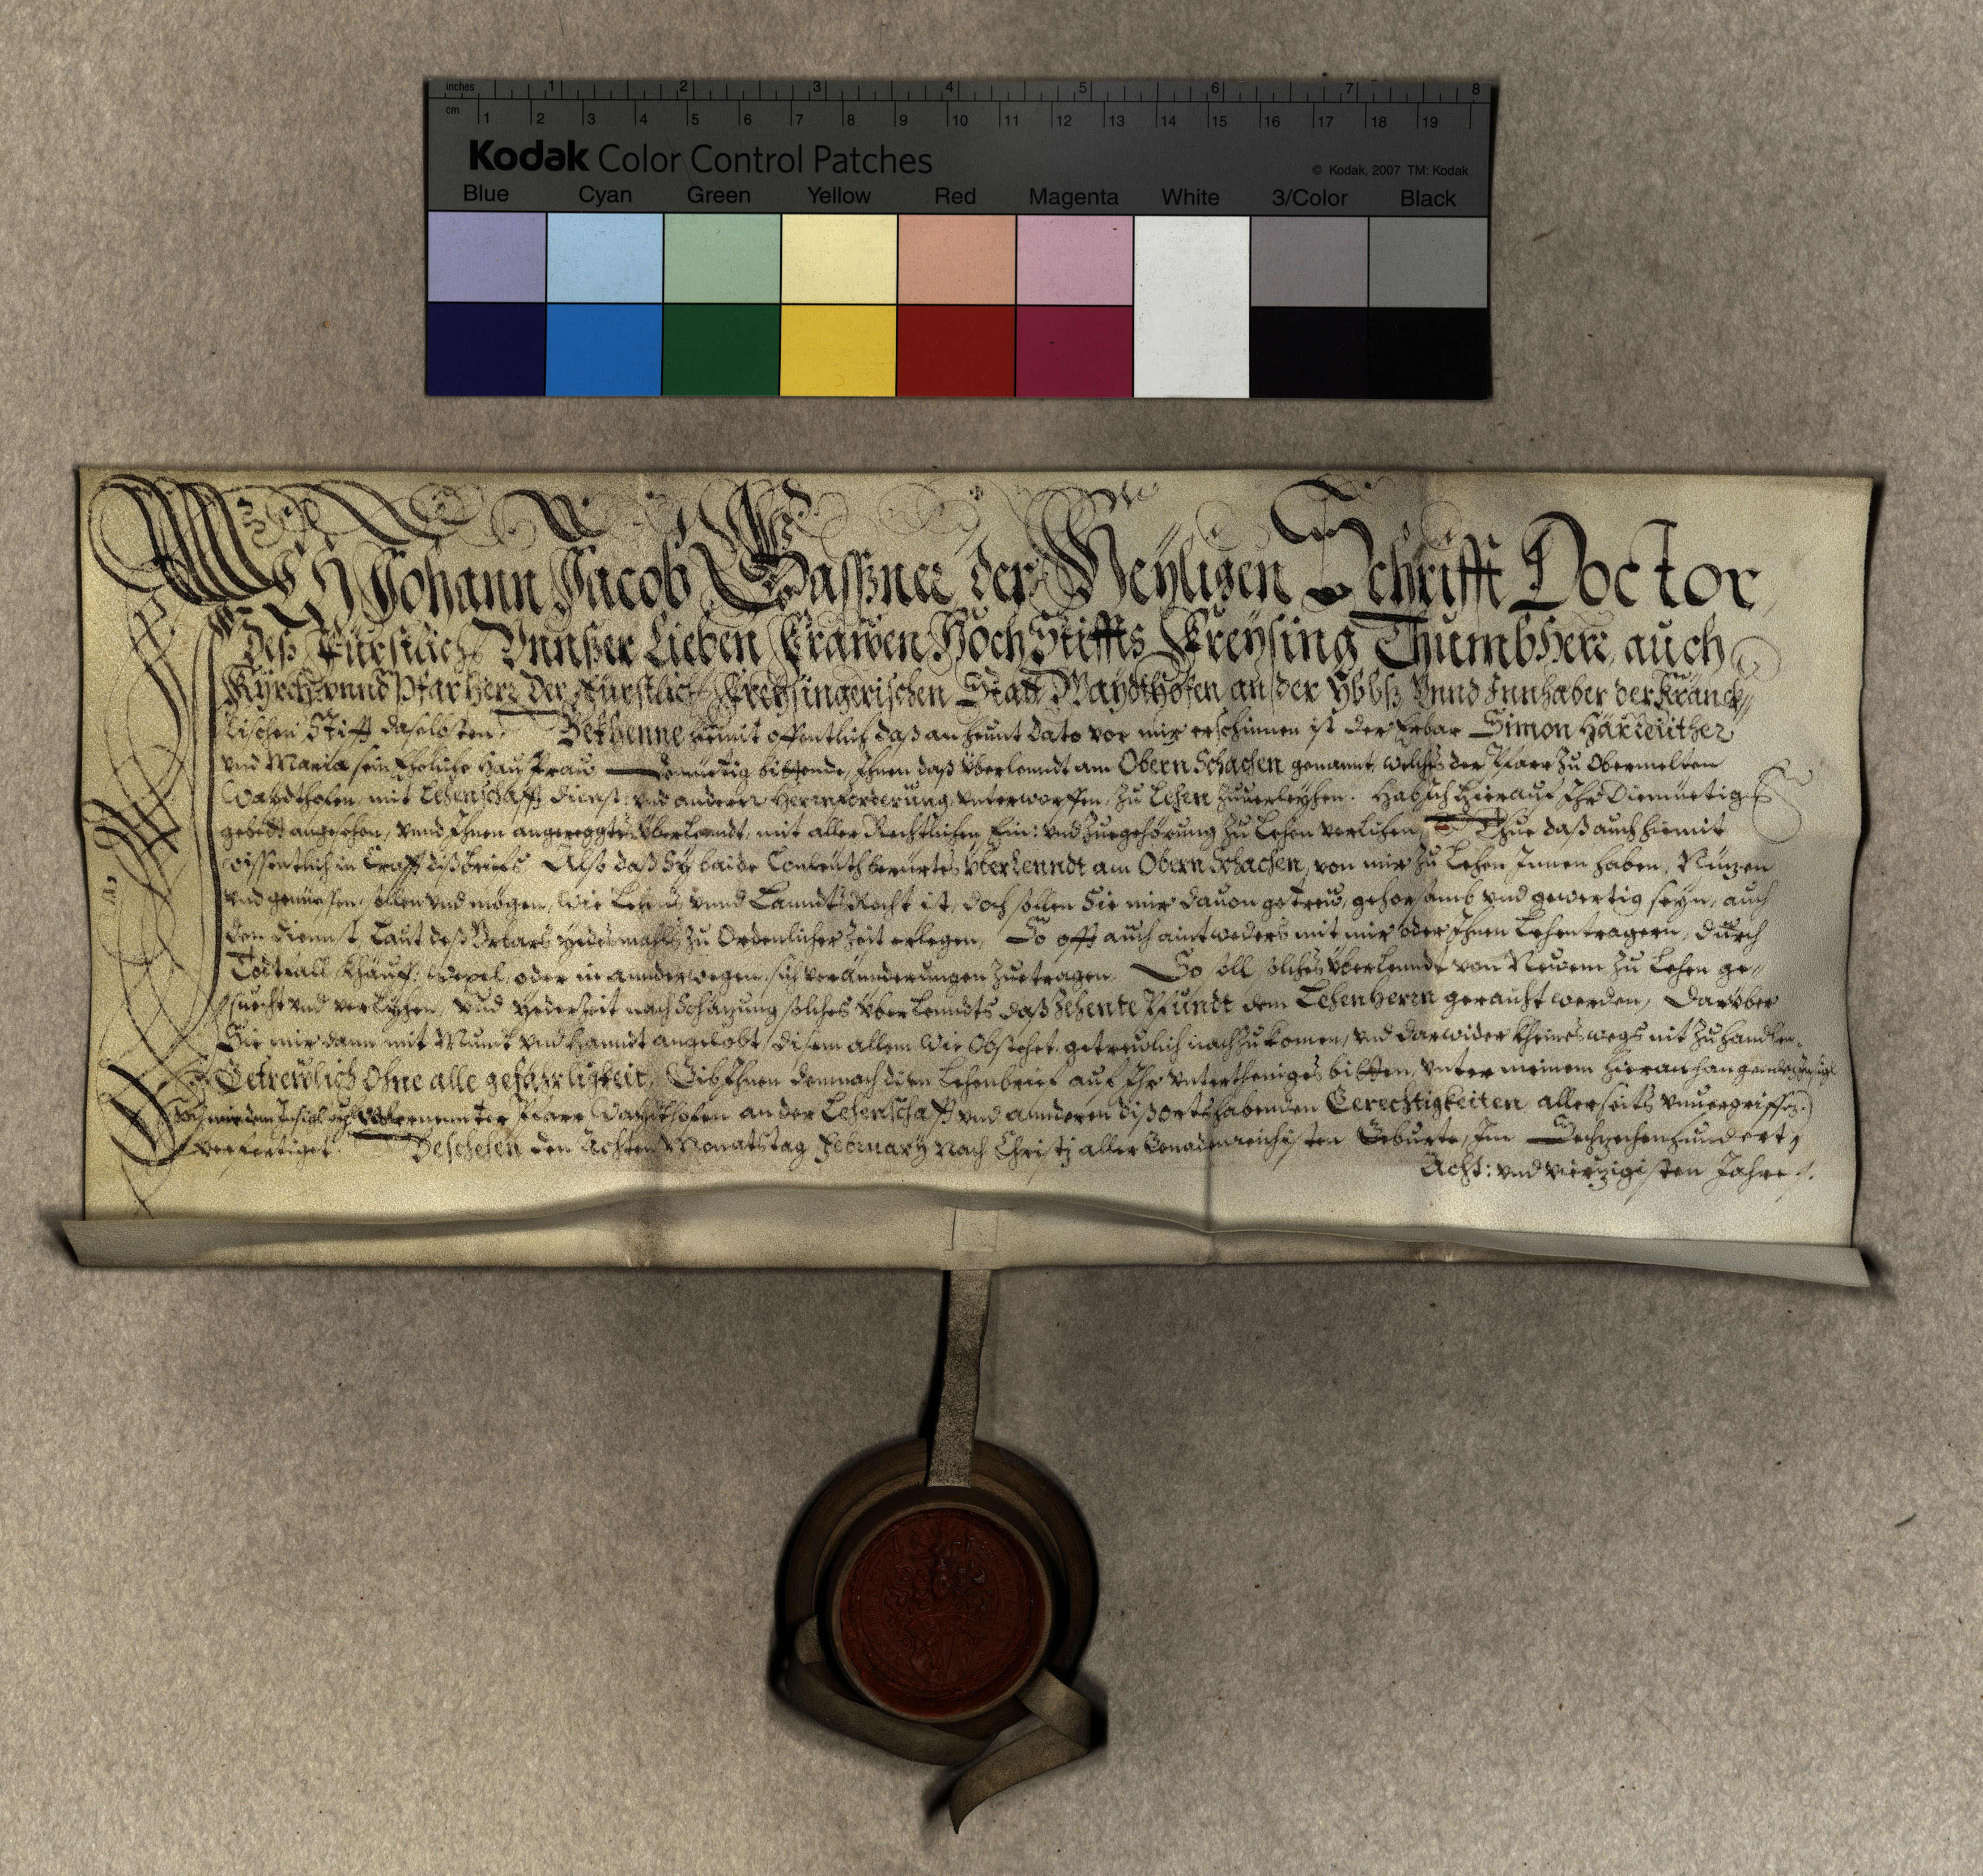 inches 1 2 3 4 5 6 7 8
cm 1 2 3 4 5 6 7 8 9 10 11 12 13 14 15 16 17 18 19
Kodak Color Control Patches © Kodak, 2007 TM: Kodak
Blue Cyan Green Yellow Red Magenta White 3/Color Black
ICH Johann Jacob Gassner der Heyligen Schrifft Doctor
deß Fürstlich Unnßer Lieben Frawen Hoch Stiffts Freysing Thumbherr, auch
Kyrch: unnd Pfarherr der Fürstlich Freysingerischen Statt Waydthofen an der Ybbß Unnd Innhaber der Kränck=
lischen Stifft daselbsten. Bekhenne hiemit offentlich daß an heunt dato vor mir erschinnen ist der Erbar Simon
und Maria sein Eheliche Haußfrau Demüetig bittende, Ihnen daß Überlenndt am Obern Schachen genannt, welches der Pfarr zu Obermelten
Waydthofen, mit Lehenschafft dienst: und anderer Herrnforderung unterworffen, zu Lehen zuuerleyhen. Hab ich hierauf Ihr Diemüetig
gebett angesehen, unnd Ihnen angereggtes Überlenndt, mit aller Rechtlichen Ein: und Zuegehörung zu Lehen verlihen, Thue daß auch hiemit
wissentlich in Crafft diß brieffs Also daß Sy baide Conleuth berürtes Überlenndt am Obern Schachen, von mir zu Lehen Innen haben, Nuzen
und geniessen, sollen und mögen, wie Lehens unnd Lanndts Recht ist, doch sollen Sie mir dauon getreu, gehorsamb und gewertig seyn, auch
den Diennst, Laut deß Urbars yedesmahls zu Ordenlicher Zeit erlegen, So offt auch aintweders mit mir oder Ihnen Lehentragern, durch
Todtfall, Khauff, Wexel, oder in annder weegen sich verännderungen zuetragen. So soll solches Überlenndt von Newem zu Lehen ge=
suecht und verlyhen, und yederzeit nach Schäzung solches Überlenndts daß zehente Pfundt dem Lehenherrn geraicht werden, Darüber
Sie mir dann mit Mundt und Hanndt angelobt disem allem wie Obstehet, getreulich nachzukomen, und darwider kheines wegs nit zuhandlen.
Getrewlich ohne alle gefährligkeit, Gib Ihnen demnach disen Lehenbrief auf Ihr untertheniges bitten, unter meinem hieran hangenden
Pfarr Waydthofen an der Lehenschafft und annderen dißorts habenden Gerechtigkeiten allerseits unuergriffen.)
verfertiget. Beschehen den Achten Monatstag February nach Christj aller Genadenreichisten Geburte, Im Sechzechenhundert,
Acht: und vierzigisten Jahre.